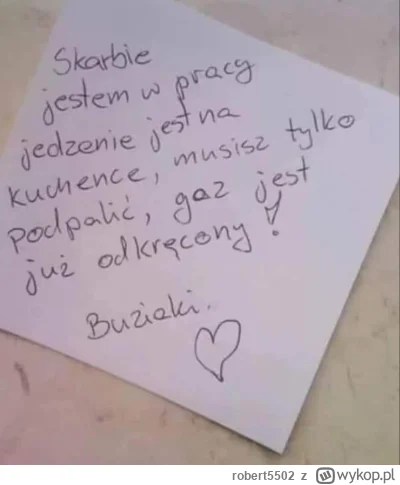 Skarbie
jestem w pracy
jedzenie jest na
kuchence, musisz tylko
podpalić, gaz jest
już odkręcony!
Buziaki.
robert5502 z wykop.pl